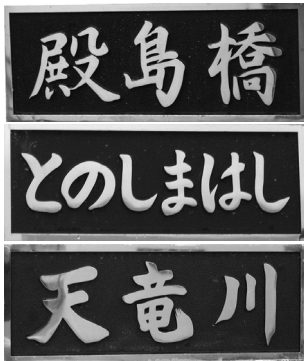 殿島橋
とのしまはし
天竜川